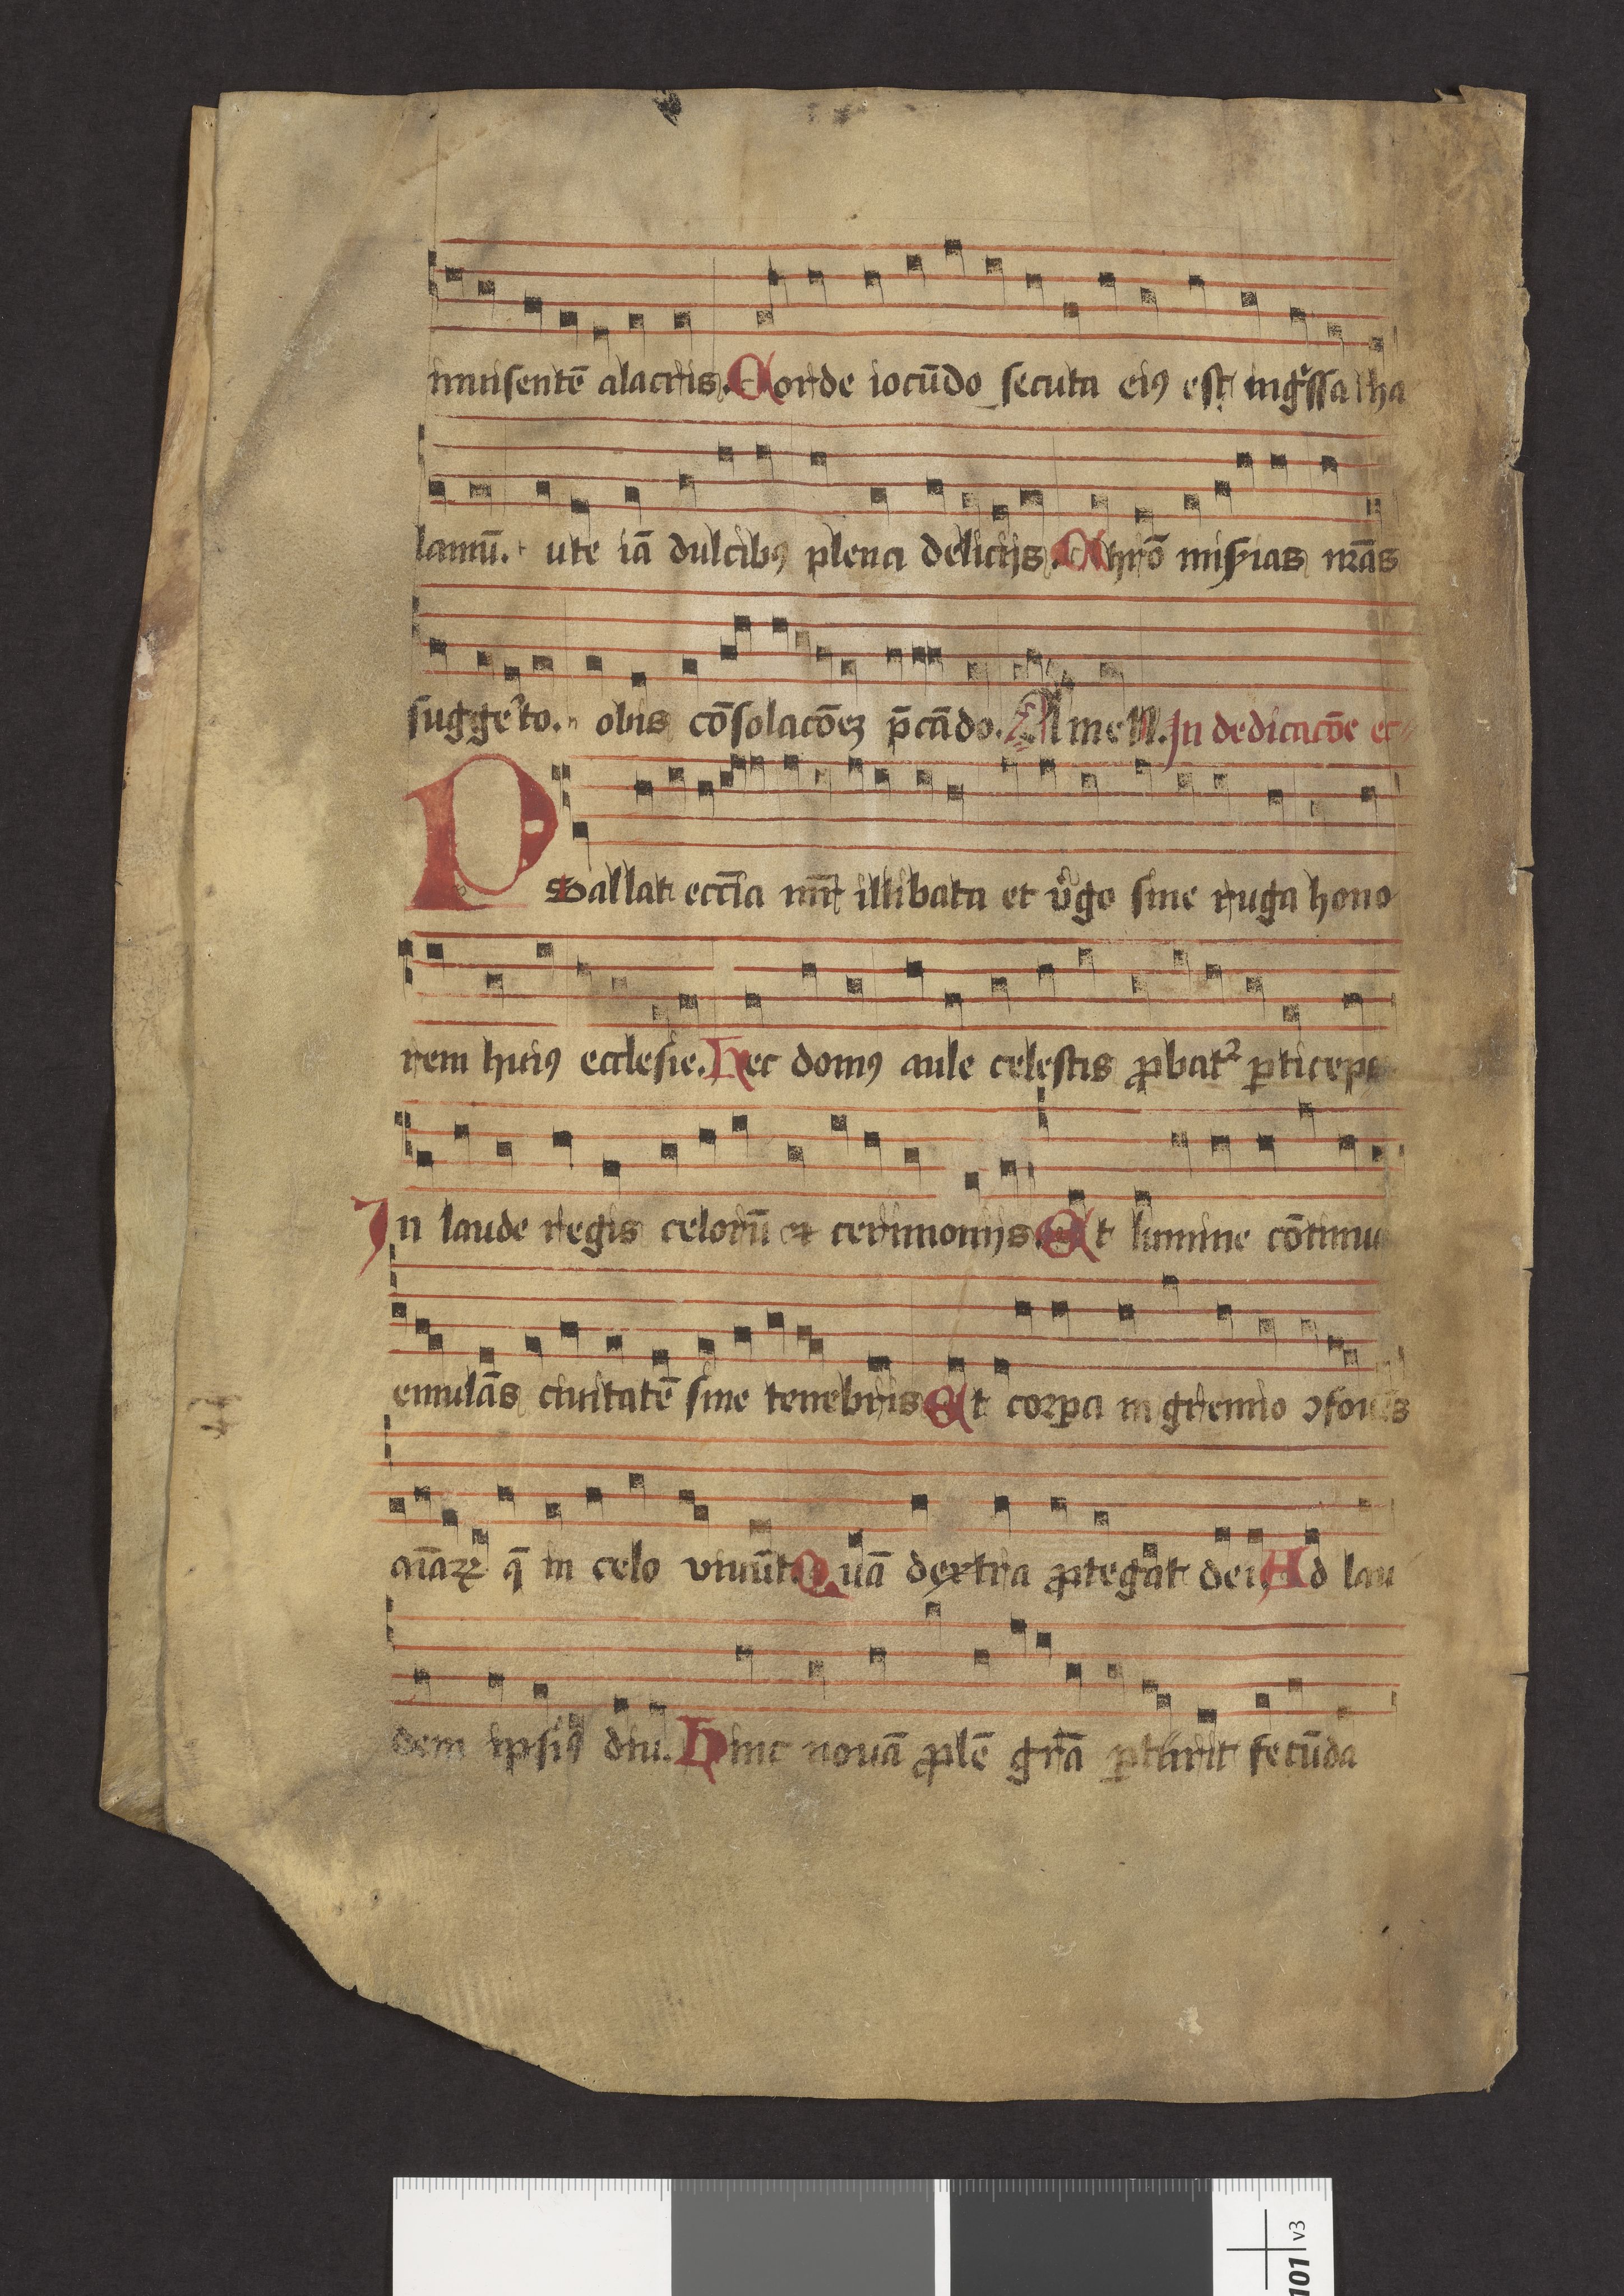 inuisentē alacris. Corde iocūdo secuta eiꝯ est ingᵉssa tha
lamū. ute iā dulcibꝯ plena deliciis. Chrō miẜias nr̄as
suggeʳto. obis cōsolacōeꝫ p̄cādo. Amen. In dedicacōe ec
Psallat eccl̄ia mr̄ illibata et vͥgo sine ruga hono
rem huiꝯ ecclesie. Hec domꝯ aule celestis ꝓbat² ꝑticeps
In laude regis celorū et cerimoniis. Et lumine cōtinuo
emulās ciuitatē sine tenebris Et corꝑa in gremio ↄfouēs
aīaꝝ q̄ in celo viuūt. Quā dextra ꝓtegat dei. Ad lau
dem ipsiꝯ diu. Hinc nouā ꝓlē gr̄a ꝑturit fecūda
101 v3